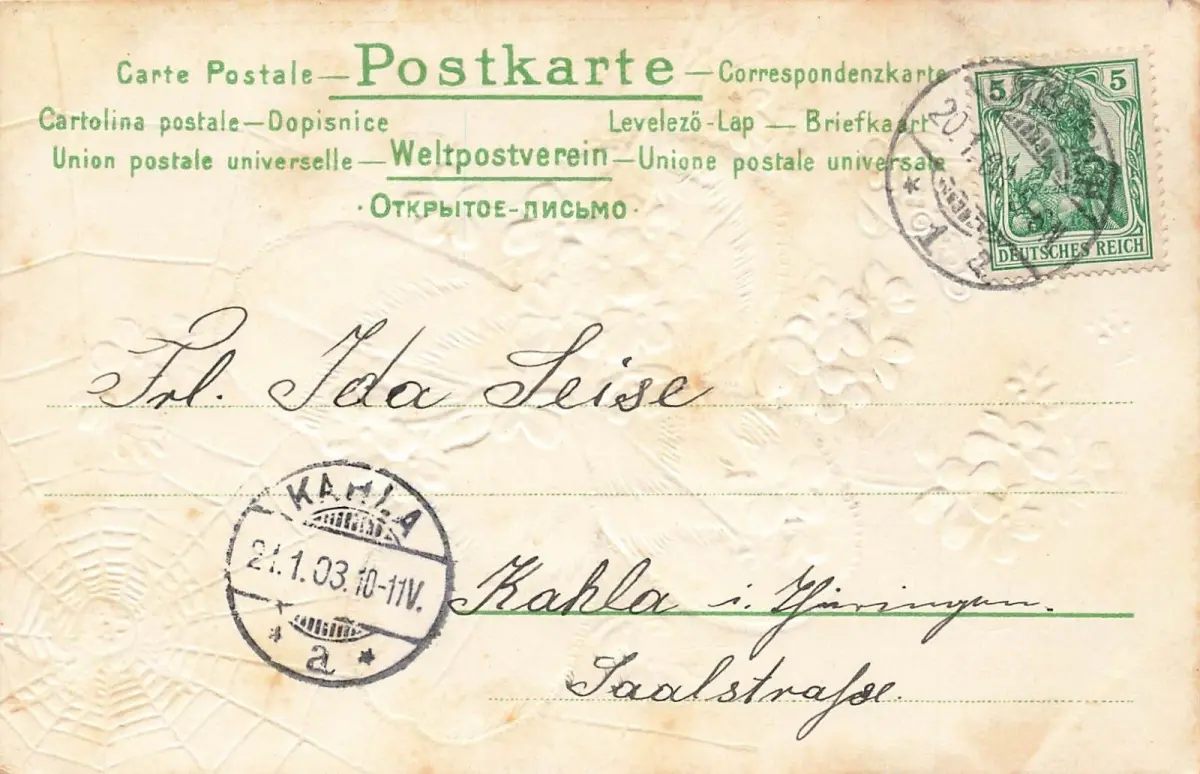 Carte Postale — Postkarte — Correspondenzkarte
Cartolina postale — Dopisnice Levelező-Lap — Briefkaart
Union postale universelle — Weltpostverein — Unione postale universale
· Открытое-письмо ·
5 5
DEUTSCHES REICH
20.1.03
1 a
Frl. Ida Seise
KAHLA
21.1.03. 10-11V.
* a *
Kahla i. Thüringen.
Saalstraße.